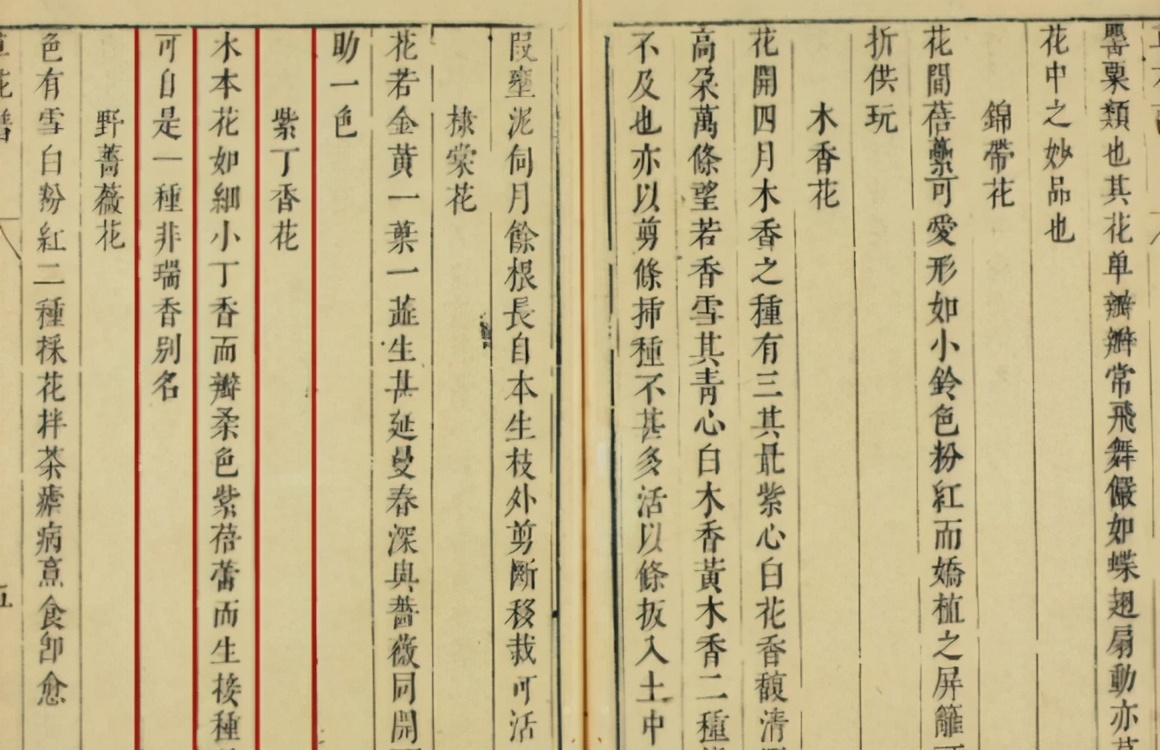 罌粟類也其花单瓣瓣常飛舞儼如蝶翅扇動亦
花中之妙品也
錦帶花
花間蓓蘽可愛形如小鈴色粉紅而嬌植之屏籬
折供玩
木香花
花開四月木香之種有三其最紫心白花香馥清
高朶萬條望若香雪其青心白木香黄木香二種
不及也亦以剪條揷種不甚多活以條扳入土中
叚壅泥伺月餘根長自本生枝外剪斷移栽可活
棣棠花
花若金黄一葉一蕋生甚延蔓春深與薔薇同開
助一色
紫丁香花
木本花如細小丁香而瓣柔色紫蓓蕾而生接種
可自是一種非瑞香别名
野薔薇花
色有雪白粉紅二種採花拌茶瘧病烹食卽愈